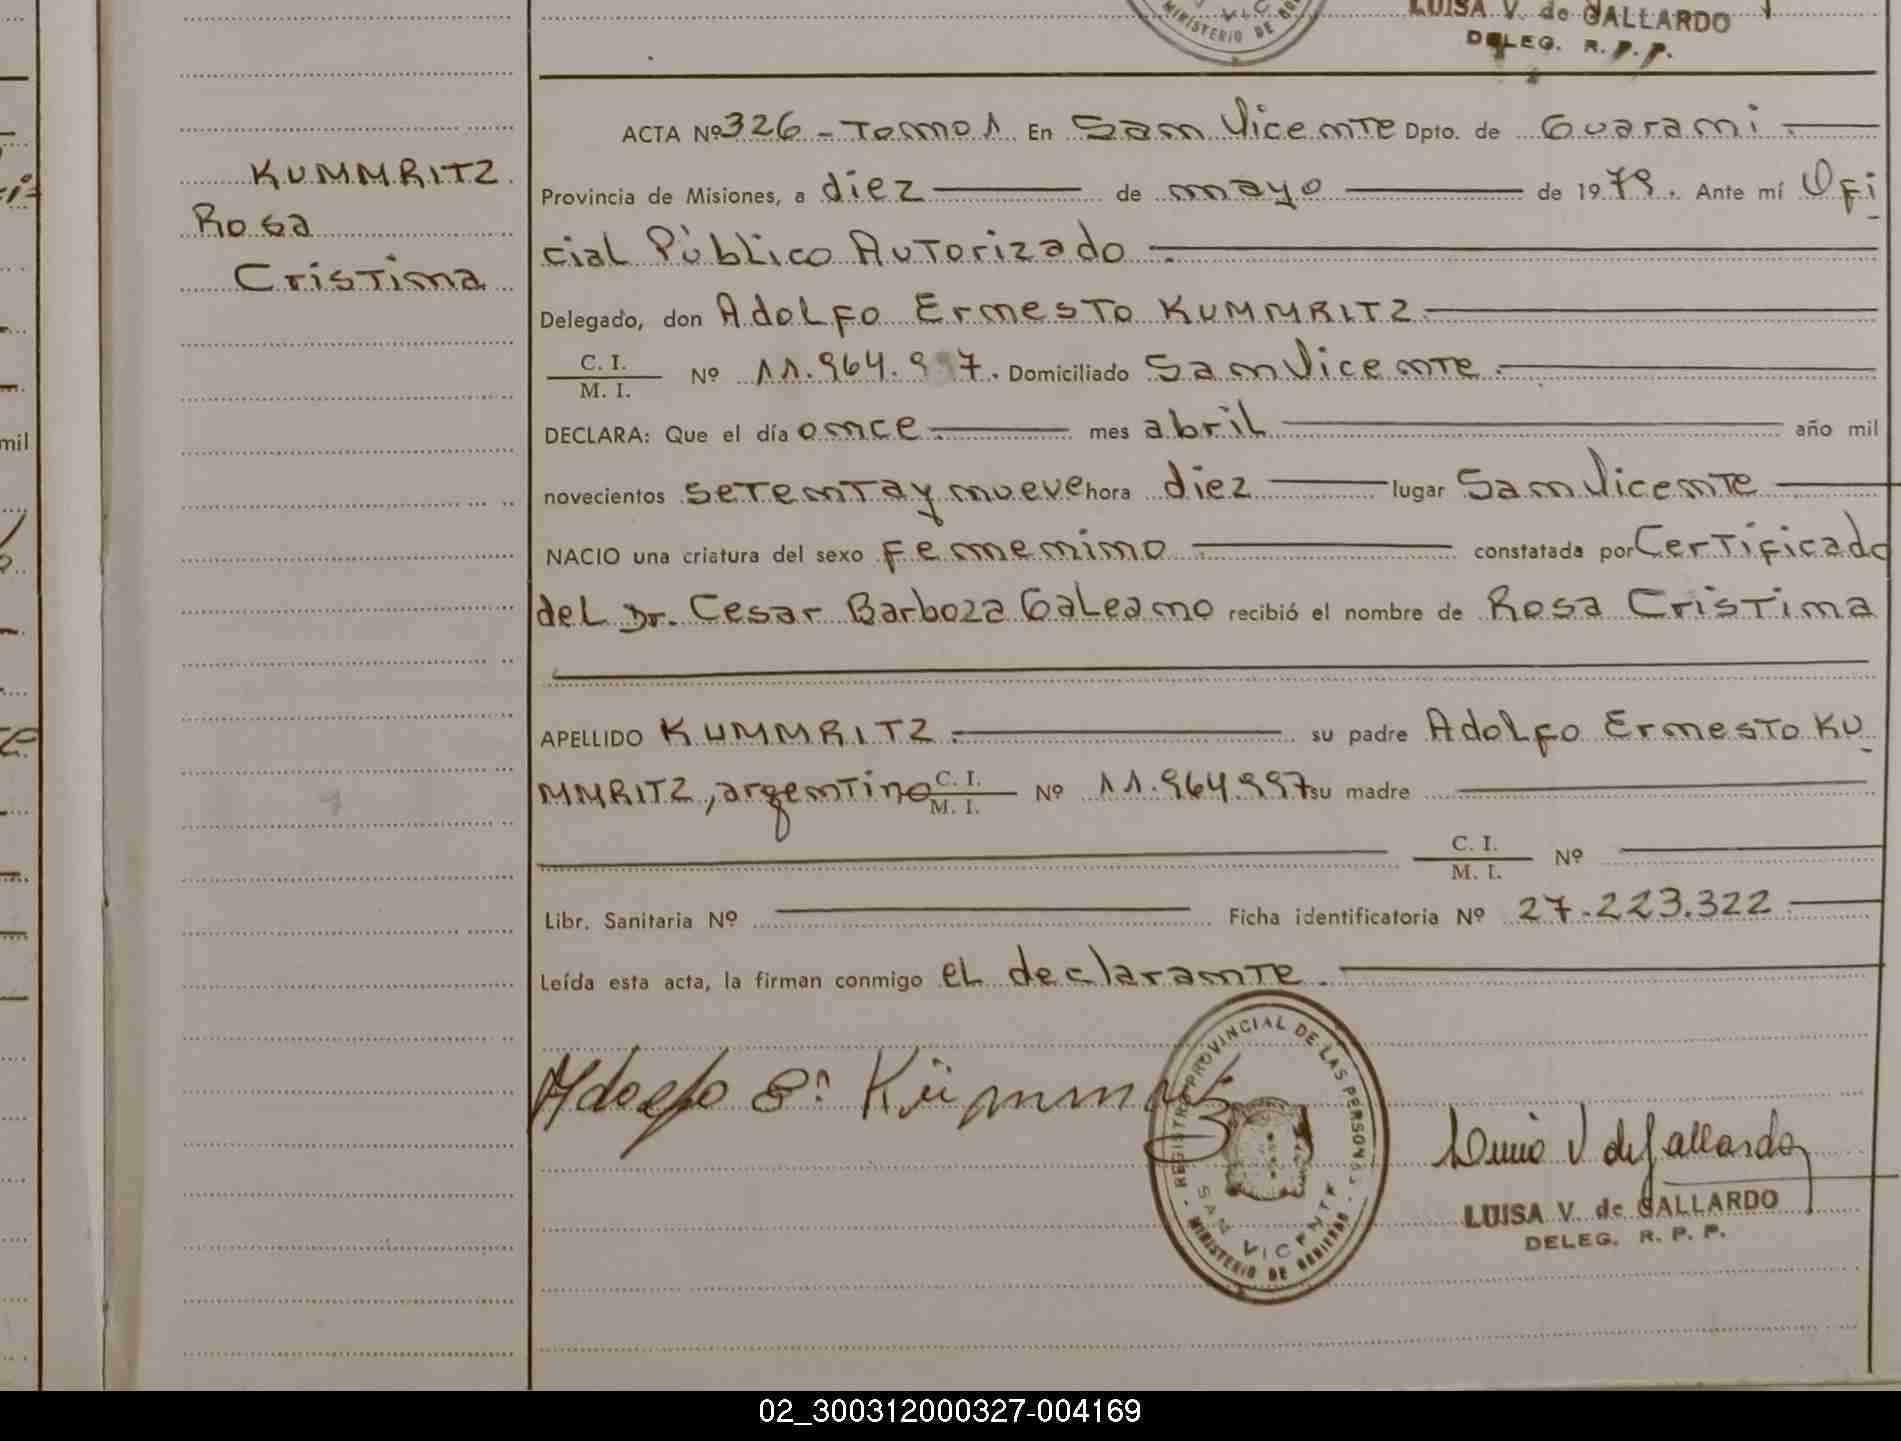 LUISA V. de GALLARDO
DELEG. R. P. P.
MINISTERIO DE
KUMMRITZ
Rosa
Cristina
ACTA Nº 326 - Tomo 1 En San Vicente Dpto. de Guarani
Provincia de Misiones, a diez de mayo de 1979. Ante mí Ofi
cial Público Autorizado
Delegado, don Adolfo Ernesto KUMMRITZ
C. I.
M. I. Nº 11.964.997. Domiciliado San Vicente
DECLARA: Que el día once mes abril año mil
novecientos setenta y nueve hora diez lugar San Vicente
NACIO una criatura del sexo femenino constatada por Certificado
del Dr. Cesar Barboza Galeano recibió el nombre de Rosa Cristina
APELLIDO KUMMRITZ su padre Adolfo Ernesto KU
MMRITZ, argentino C. I. M. I. Nº 11.964.997 su madre
C. I.
M. I. Nº
Libr. Sanitaria Nº Ficha identificatoria Nº 27.223.322
Leída esta acta, la firman conmigo el declarante.
Adolfo Eº Kümmritz
REGISTRO PROVINCIAL DE LAS PERSONAS
SAN VICENTE
MINISTERIO DE GOBIERNO
Luisa V de Gallardo
LUISA V. de GALLARDO
DELEG. R. P. P.
mil
02_300312000327-004169